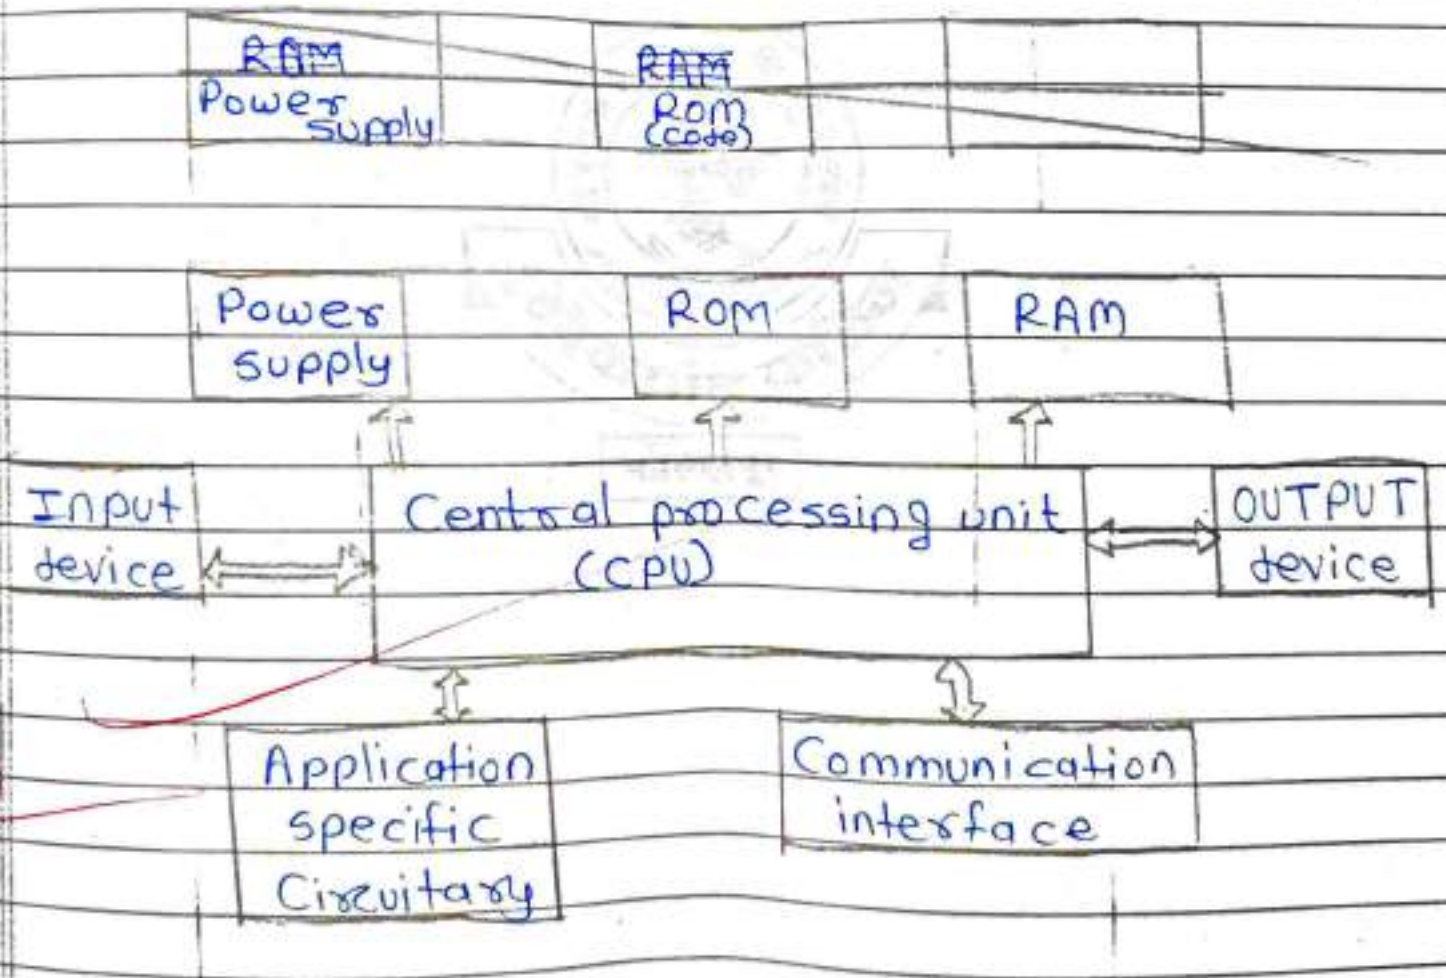 RAM
Power
supply
RAM
ROM
(code)
Power
supply
ROM
RAM
Input
device
Central processing unit
(CPU)
OUTPUT
device
Application
specific
Circuitary
Communication
interface